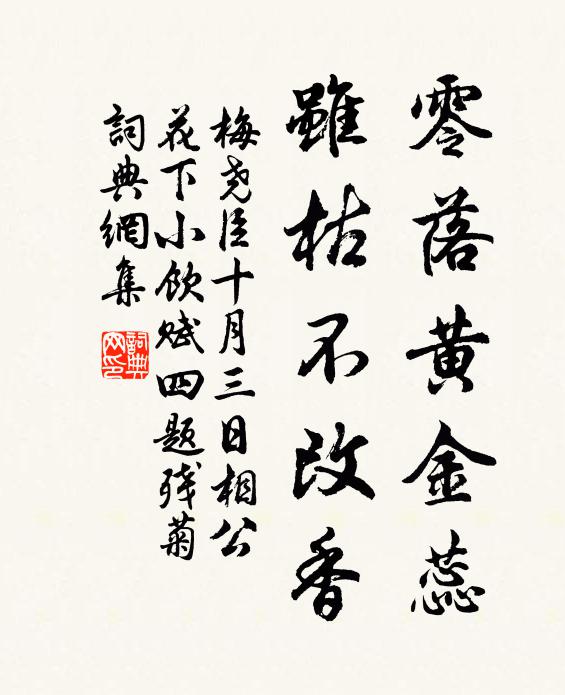 零落黄金蕊
雖枯不改香
梅尧臣十月三日相公
花下小飲赋四题残菊
詞典網集
詞典网印